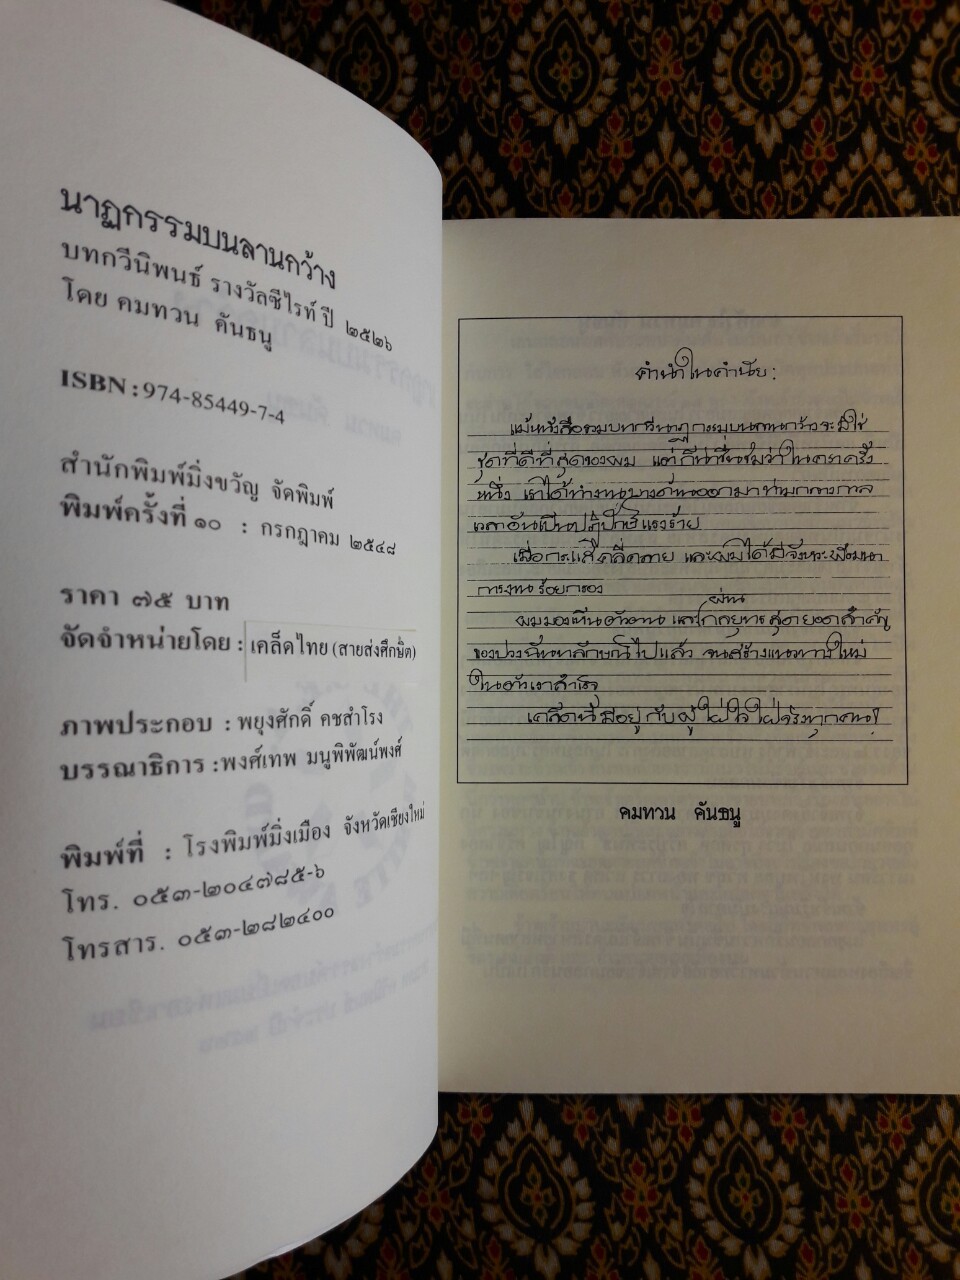 นาฏกรรมบนลานกว้าง
บทกวีนิพนธ์ รางวัลซีไรท์ ปี ๒๕๒๖
โดย คมทวน คันธนู
ISBN : 974-85449-7-4
สำนักพิมพ์มิ่งขวัญ จัดพิมพ์
พิมพ์ครั้งที่ ๑๐ : กรกฎาคม ๒๕๔๘
ราคา ๗๕ บาท
จัดจำหน่ายโดย : เคล็ดไทย (สายส่งศึกษิต)
ภาพประกอบ : พยุงศักดิ์ คชสำโรง
บรรณาธิการ : พงศ์เทพ มนูพิพัฒน์พงศ์
พิมพ์ที่ : โรงพิมพ์มิ่งเมือง จังหวัดเชียงใหม่
โทร. ๐๕๓-๒๐๔๗๘๕-๖
โทรสาร. ๐๕๓-๒๘๒๔๐๐
คำนำในคำนัย :
แม้หนังสือรวมบทกวีนาฏกรรมบนลานกว้างจะมิใช่
ชุดที่ดีที่สุดของผม แต่ก็น่าชื่นชมว่าในคราครั้ง
หนึ่ง เราได้ทำงานบางด้านออกมาท่ามกลางกาล
เวลาอันเป็นปฏิปักษ์แรงร้าย
เมื่อกระแสคลี่คลาย และผมได้มีจังหวะพัฒนา
การงานร้อยกรอง
ผมมองเห็นตัวตน และผ่านกลยุทธสุดยอดสำคัญ
ของปวงฉันทลักษณ์ไปแล้ว จนสร้างแนวทางใหม่
ในตัวเราสำเร็จ
เคล็ดนี้มีอยู่กับผู้ใฝ่ใจใฝ่จริงทุกคน!
คมทวน คันธนู